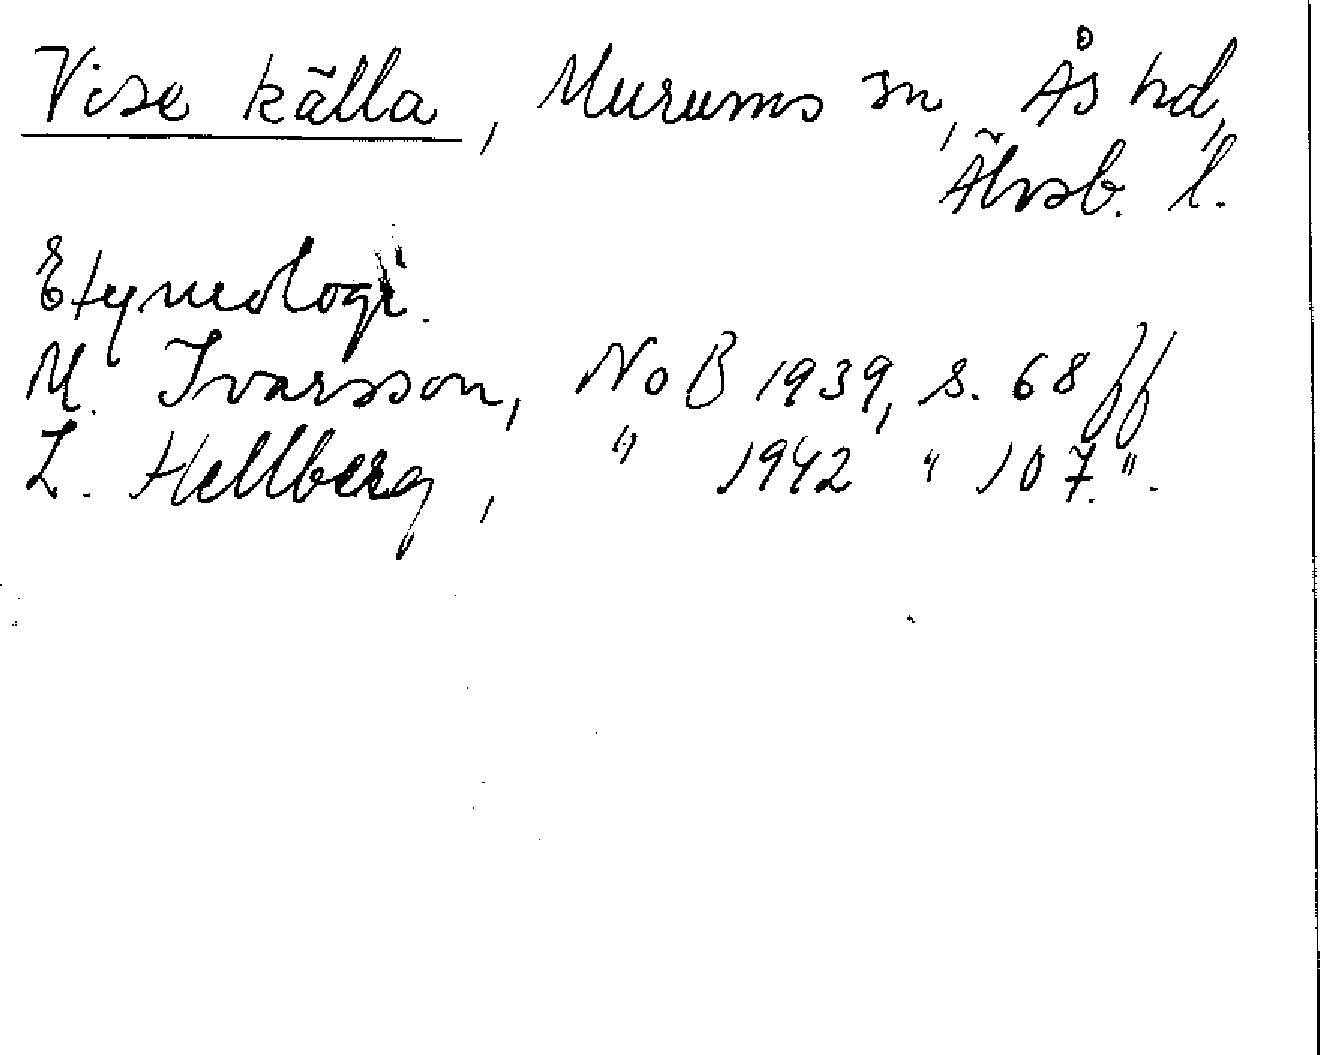 Vise källa, Murums sn, Ås hd,
Älvsb. l.
Etymologi.
M. Ivarsson, NoB 1939, s. 68 ff
L. Hellberg, " 1942 " 107. ".